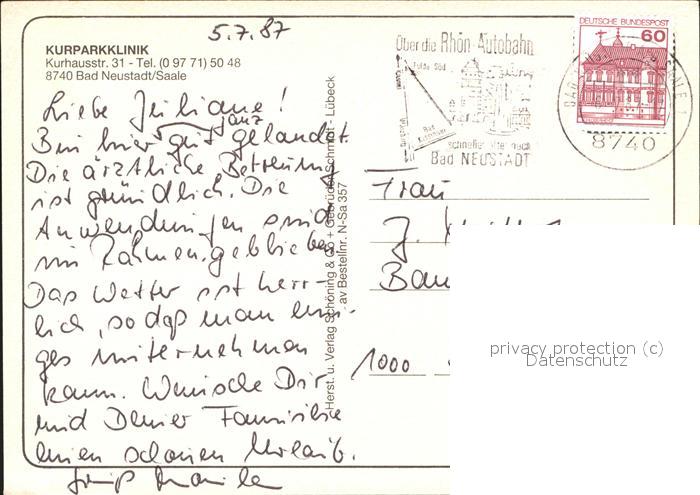 5.7.87
KURPARKKLINIK
Kurhausstr. 31 - Tel. (0 97 71) 50 48
8740 Bad Neustadt/Saale
Über die Rhön-Autobahn
schneller
Bad NEUSTADT
DEUTSCHE BUNDESPOST
60
8740
Liebe Juliane!
Bin hier ganz gut gelandet.
Die ärztliche Betreuung
ist gründlich. Die
Anwendungen sind
im Rahmen geblieben
Das Wetter ist herr-
lich, so daß man eini-
ges unternehmen
kann. Wünsche Dir
und Deiner Familie
einen schönen Urlaub.
Herst. u. Verlag Schöning & Co + Gebrüder Schmidt - Lübeck
av Bestellnr. N-Sa 357
Frau
J.
1000
privacy protection (c)
Datenschutz